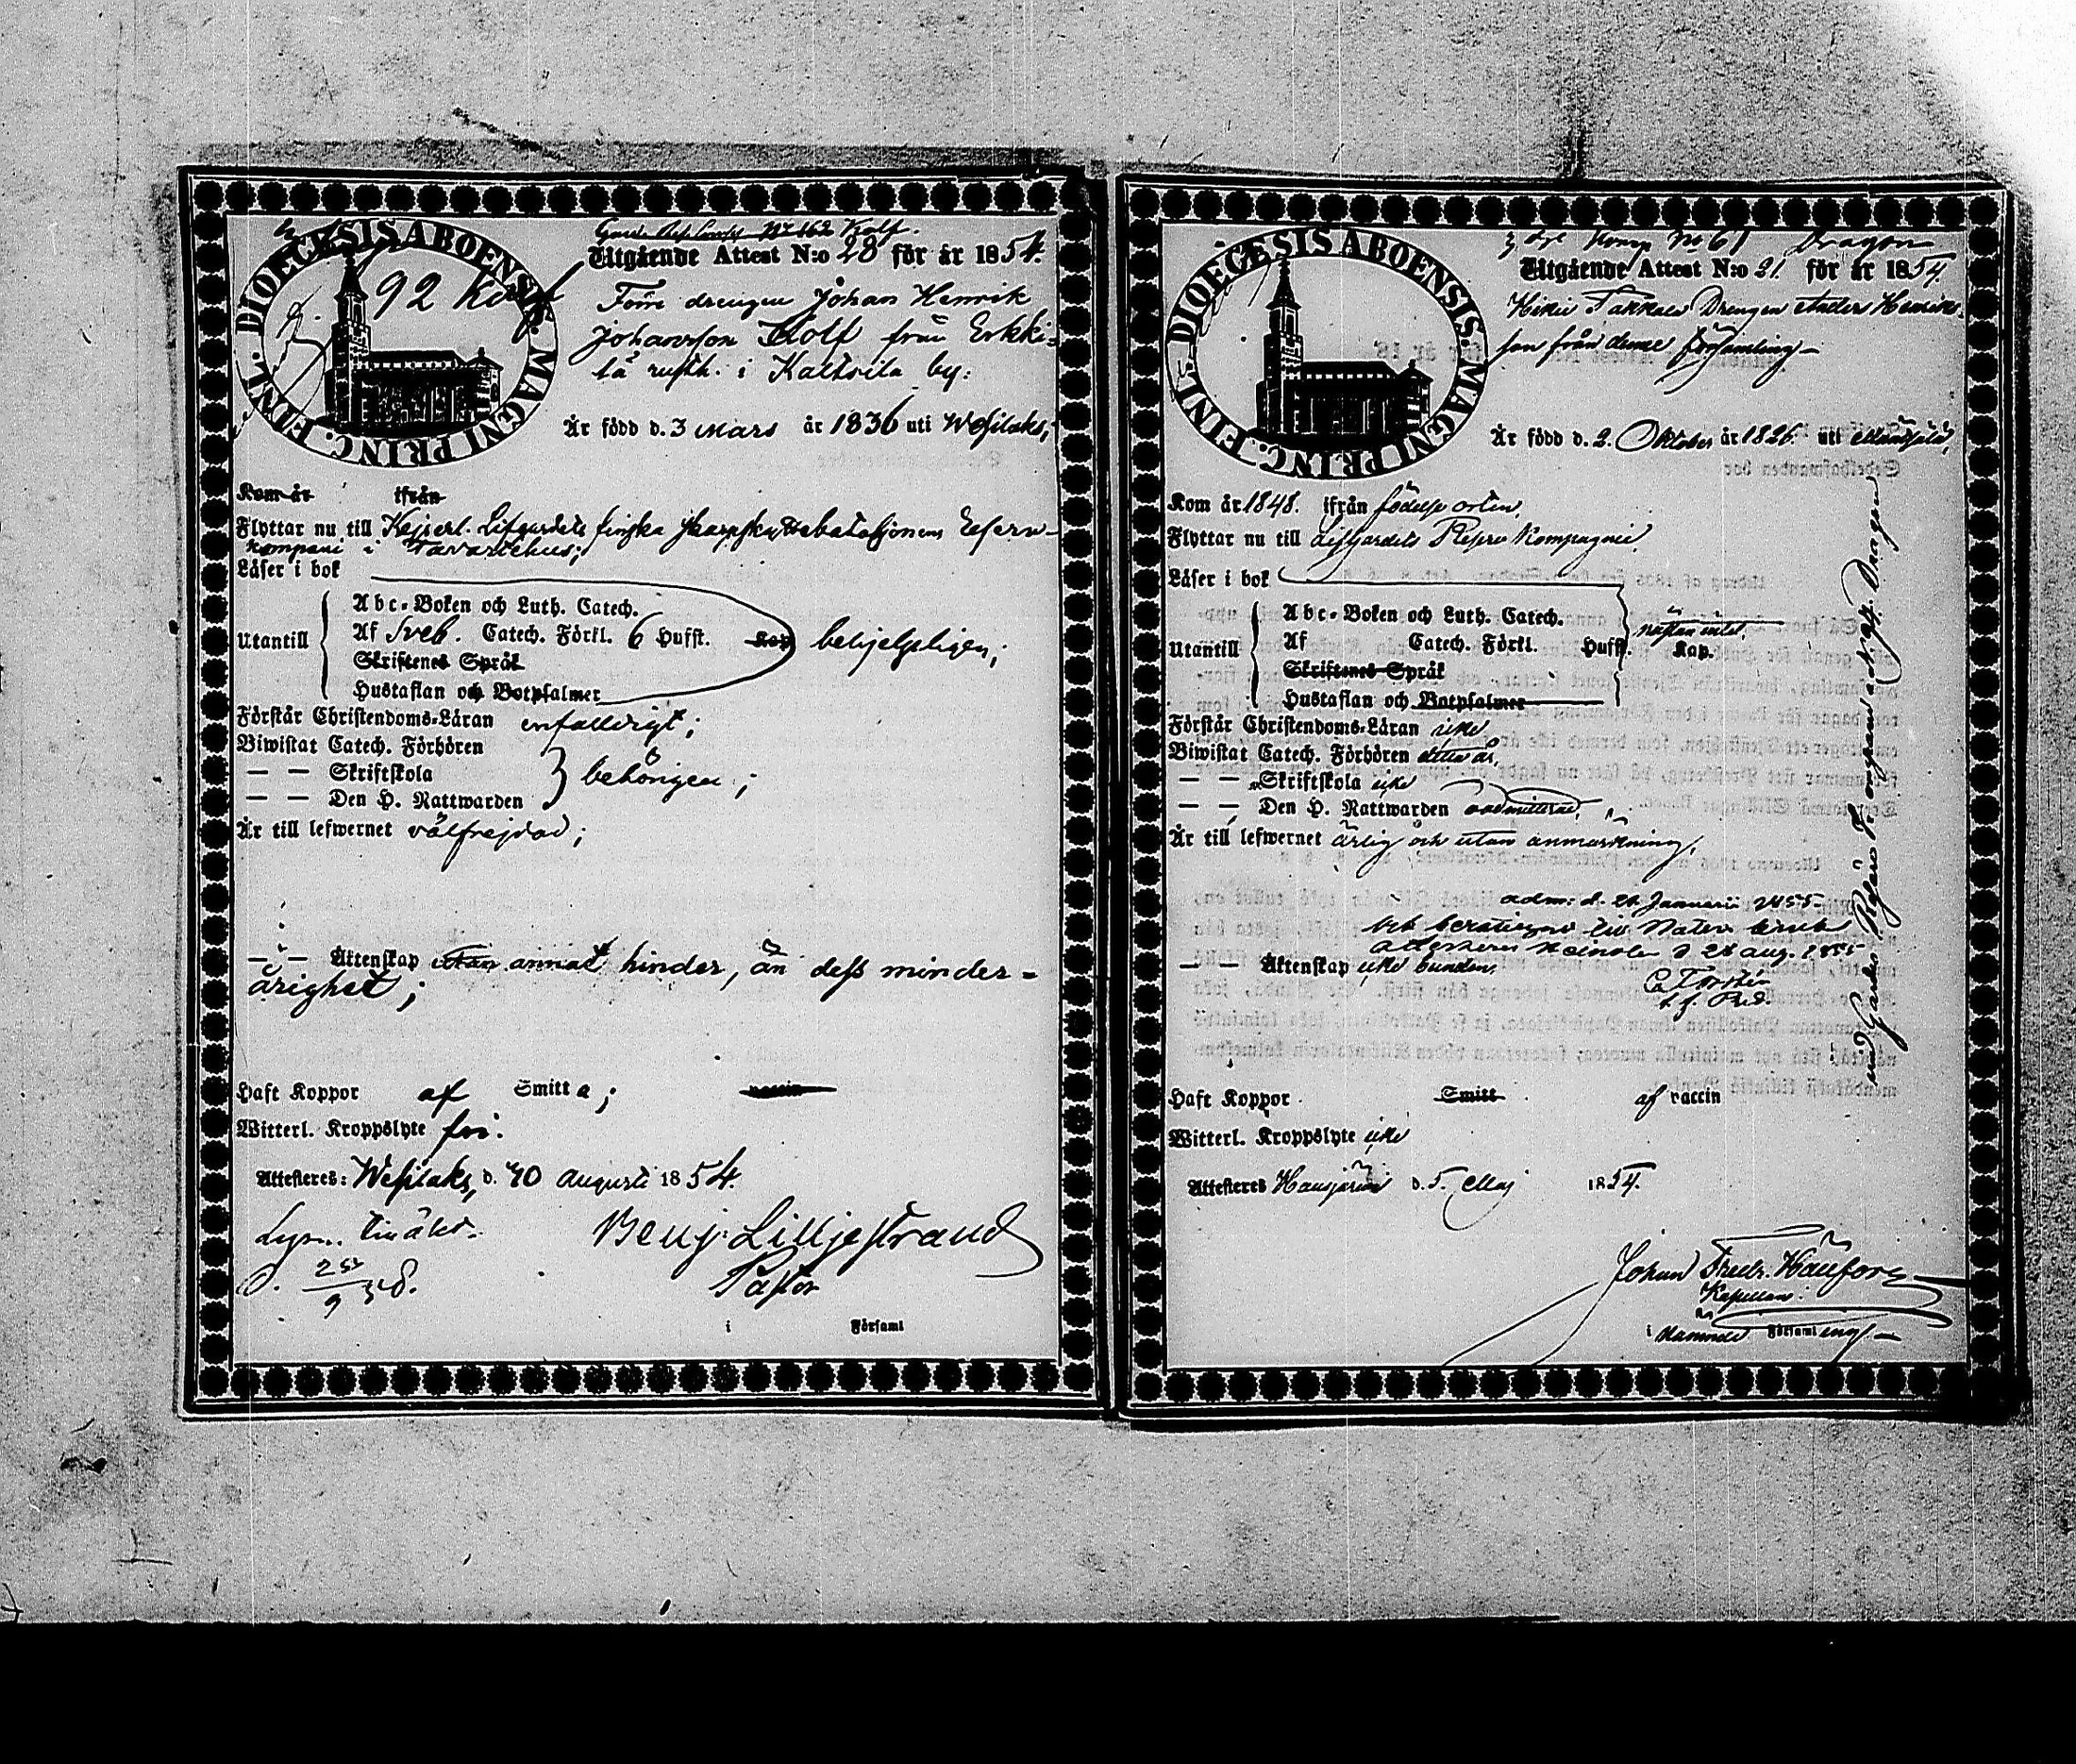 DIOECESIS ABOENSIS. MAGNI PRINC. FINL.
92 Kolf
No 162 Kolf.
Utgående Attest N:o 28 för år 1854.
Förre drengen Johan Henrik
Johansson Kolf från Erkki-
lä rusth. i Kaltsila by:
Är född d. 3 Mars år 1836 uti Wesilaks;
Kom år ifrån
Flyttar nu till Kejserl. Lifgardets finska skarpskyttebataljonens Reserv-
kompani i Tavastehus;
Läser i bok
Utantill
Abc-Boken och Luth. Catech.
Af Sveb. Catech. Förkl. 6 Hufst. Kap behjelpligen;
Skriftenes Språk
Hustaflan och Botpsalmer
Förstår Christendoms-Läran enfaldigt;
Biwistat Catech. Förhören
— — Skriftskola behörigen;
— — Den H. Nattwarden
Är till lefwernet välfrejdad;
— — Äktenskap utan annat hinder, än dess minder-
årighet;
Haft Koppor af Smitta; vaccin
Witterl. Kroppslyte fri.
Attesteres: Wesilaks, d. 30 Augusti 1854.
Benj. Lilljestrand
Pastor
i Församl
DIOECESIS ABOENSIS. MAGNI PRINC. FINL.
Komp No 61 Dragon
Utgående Attest N:o 21. för år 1854.
Drengen Anders Henriks-
son från denne församling
Är född d. 2. Oktober år 1826. uti
Kom år 1848. ifrån födelse orten.
Flyttar nu till Lifgardets Reserv Kompagnie.
Läser i bok
Utantill
Abc-Boken och Luth. Catech.
Af Catech. Förkl. Hufst. nästan intet. Kap.
Skriftenes Språk
Hustaflan och Botpsalmer
Förstår Christendoms-Läran icke
Biwistat Catech. Förhören detta år.
— — Skriftskola icke
— — Den H. Nattwarden oadmitterad.
Är till lefwernet ärlig och utan anmärkning.
adm: d. 21 Januarii 1855
d 28 aug. 1855
— — Äktenskap icke bunden.
Haft Koppor Smitt af vaccin
Witterl. Kroppslyte icke
Attesteres Hausjärvi d. 5. Maj 1854.
Johan Fredr.
Kapellan.
i Församl
vid Gardes Reserv Kompani N. 94. Dragon